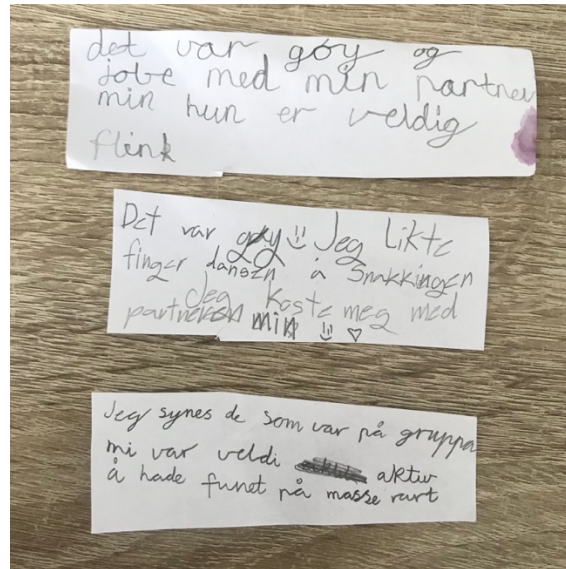 det var gøy og
jobe med min partner
min hun er veldig
flink
Det var gøy Jeg Likte
finger dansen å Snakkingen
Jeg koste meg med
partneren min
Jeg synes de som var på gruppa
mi var veldi aktiv
å hade funet på masse rart